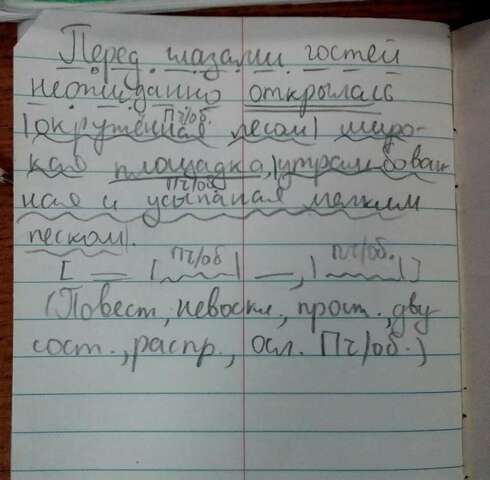 Перед глазами гостей
неожиданно открылась
Пч/об.
|окружённая лесом| широ-
кая площадка,|утрамбован-
Пч/об
ная и усыпаная мелким
песком|.
Пч/об Пч/об.
[ = |~~~| —, |~~~|]
(Повест, невоскл, прост., дву
сост., распр., осл. Пч/об.)